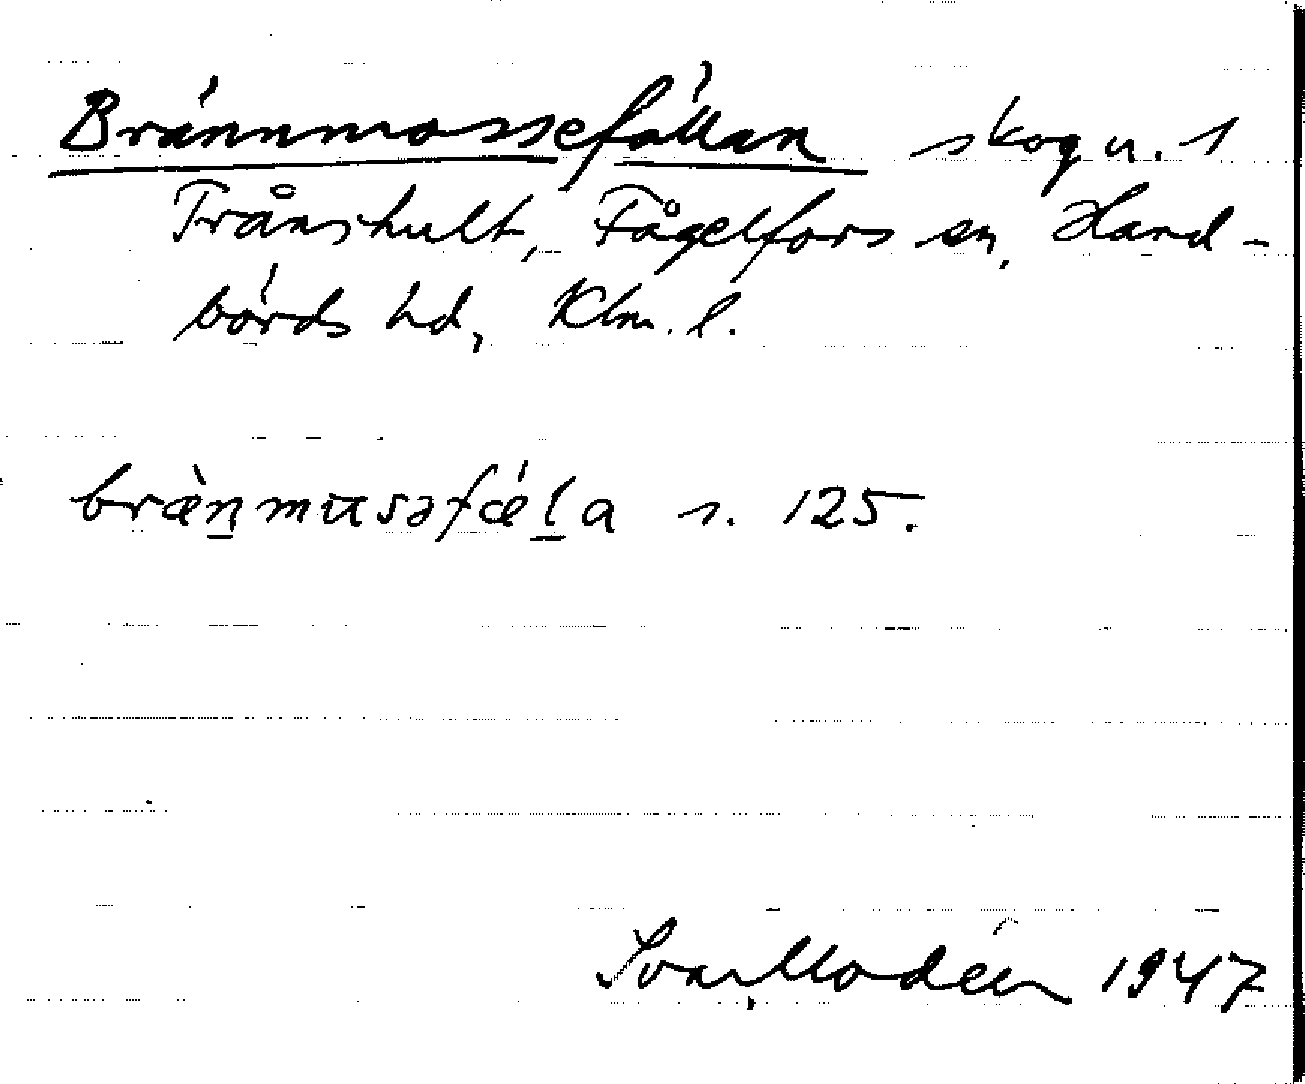 Brännmossefällan skog u. 1
Frånshult, Fågelfors sn, Hand-
börds hd, Klm. l.
bræ̀n̲musəfǽl̲a s. 125.
Ivar Modéer 1947